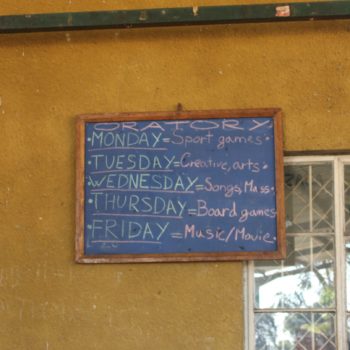 ORATORY
•MONDAY=Sport games•
•TUESDAY=Creative, arts•
•WEDNESDAY=Songs, Mass
•THURSDAY=Board games
•FRIDAY=Music/Movie.